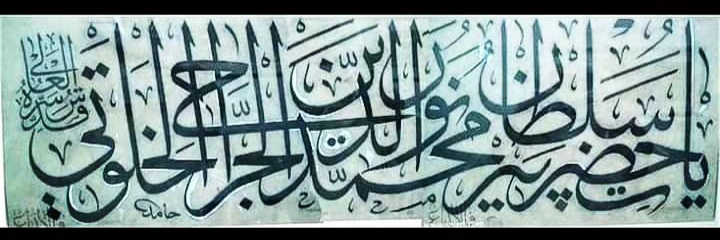 يا حضرت سلطان پير محمد نور الدين الجراحي الخلوتي
قدس سره العالي
حامد